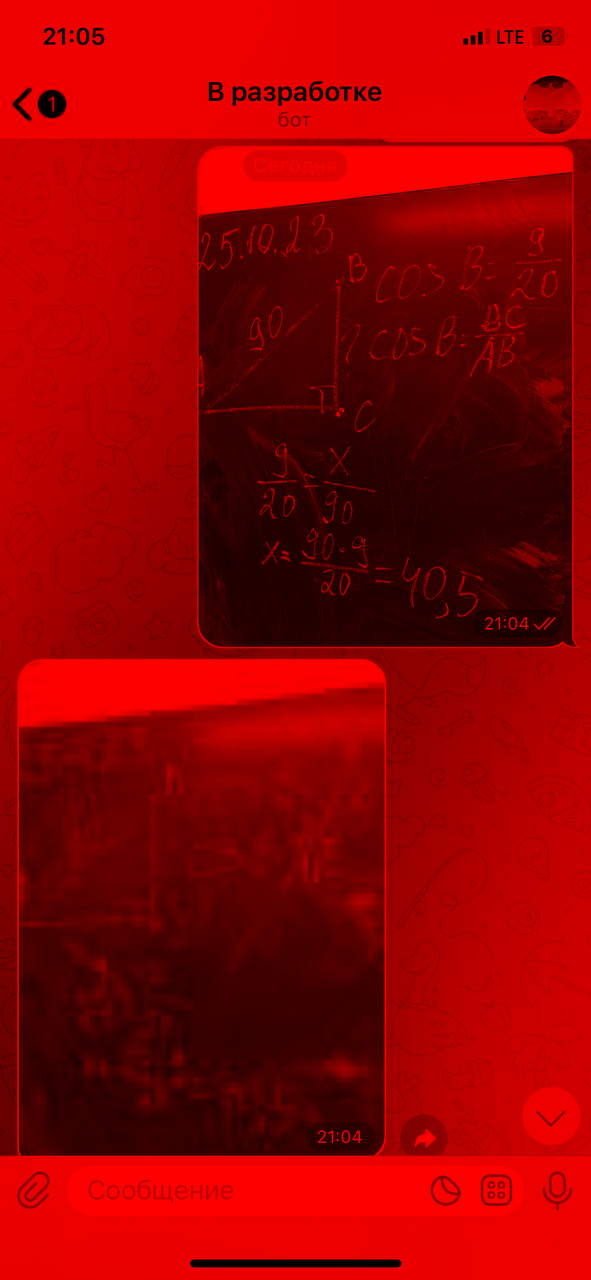 21:05 LTE 6
1 В разработке
бот
Сегодня
25.10.23
B cos B = 9/20
90 ? cos B = BC/AB
A C
9/20 = x/90
x = 90·9/20 = 40,5
21:04
21:04
Сообщение